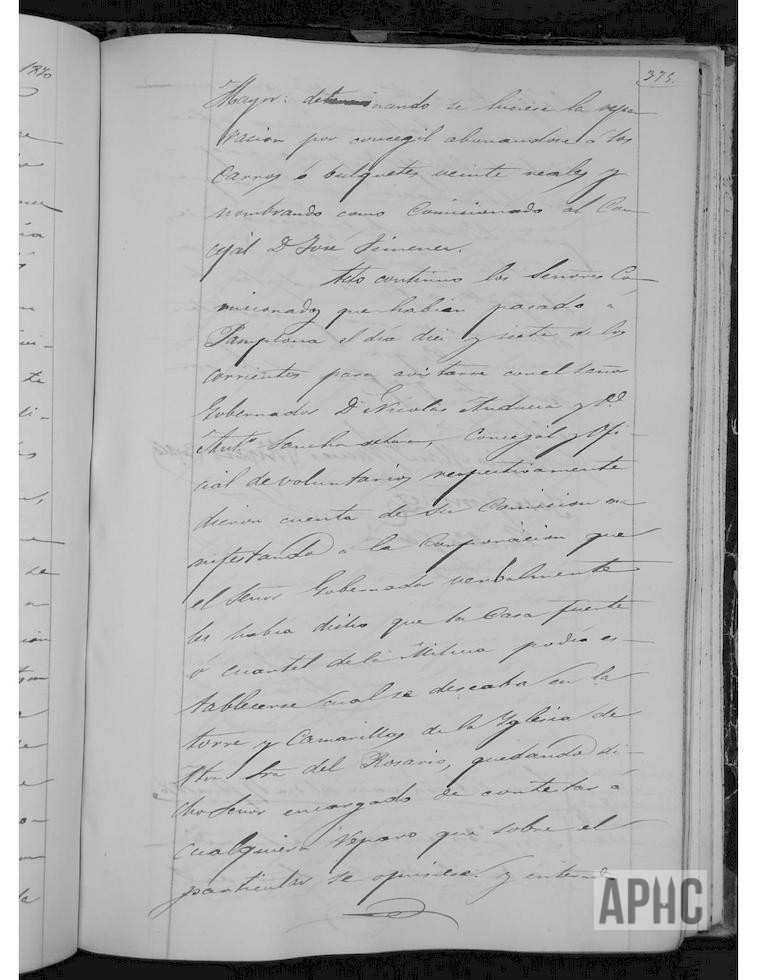 1870
375.
Mayor: determinando se hiciese la repa-
racion por concegil abonandose á los
carros ó bulquetes veinte reales y
nombrando como Comisionado al Con-
cejal D José Jimenez.
Acto continuo los Señores Co-
misionados que habian pasado á
Pamplona el dia diez y siete de los
corrientes para avistarse con el Señor
Gobernador Dn Nicolas Anducia y Dn
Anto Sancho, Concejal y Ofi-
cial de voluntarios respectivamente
dieron cuenta de su Comision ma
nifestando á la Corporacion que
el Señor Gobernador verbalmente
les habia dicho que la Casa fuerte
ó cuartel de la Milicia podia es-
tablecerse cual se deseaba en la
torre y Camarillas de la Yglesia de
Ntra Sra del Rosario, quedando di-
cho Señor encargado de contestar á
cualquiera reparo que sobre el
particular se opusiese y
APHC